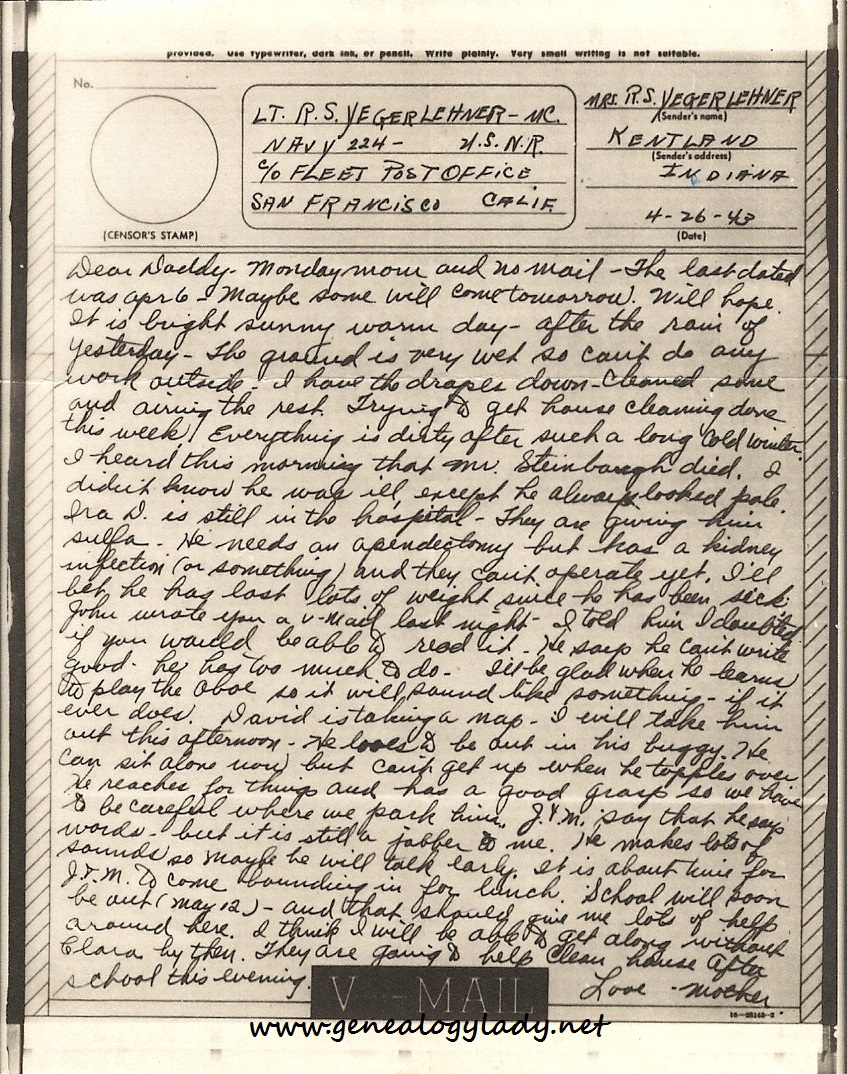 provided. Use typewriter, dark ink, or pencil. Write plainly. Very small writing is not suitable.
No.
(CENSOR'S STAMP)
LT. R.S. YEGERLEHNER - MC.
NAVY 224 - U.S.N.R.
c/o FLEET POST OFFICE
SAN FRANCISCO CALIF.
MRS. R.S. YEGERLEHNER
(Sender's name)
KENTLAND
(Sender's address)
INDIANA
4-26-43
(Date)
Dear Daddy - Monday morn and no mail - The last dated
was apr 6. Maybe some will come tomorrow. Will hope.
It is bright sunny warm day - after the rain of
yesterday - The ground is very wet so can't do any
work outside - I have the drapes down - Cleaned some
and airing the rest. Trying to get house cleaning done
this week! Everything is dirty after such a long cold winter.
I heard this morning that Mr. Steinbaugh died. I
didn't know he was ill, except he always looked pale.
Ira D. is still in the hospital - They are giving him
sulfa - He needs an apendectomy but has a kidney
infection (or something) and they can't operate yet. I'll
bet he has lost lots of weight since he has been sick.
John wrote you a V-Mail last night - I told him I doubted
if you would be able to read it. He says he can't write
good - he has too much to do - I'll be glad when he learns
to play the oboe so it will sound like something - if it
ever does. David is taking a nap - I will take him
out this afternoon - He loves to be out in his buggy. He
can sit alone now but can't get up when he topples over
He reaches for things and has a good grasp so we have
to be careful where we park him. J. & M. say that he says
words - but it is still a jabber to me. He makes lots of
sounds so maybe he will talk early. It is about time for
J. & M. to come bounding in for lunch. School will soon
be out (May 12) - and that should give me lots of help
around here. I think I will be able to get along without
Clara by then. They are going to help clean house after
school this evening.
Love - Mother
V - MAIL
16-28143-2
www.genealogylady.net